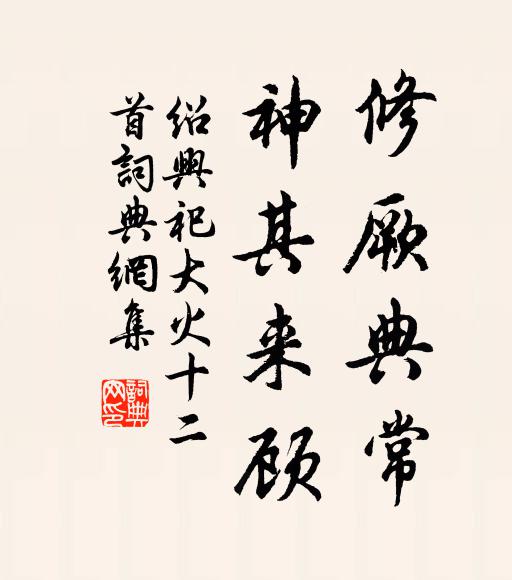 修厥典常
神其来顾
绍興祀大火十二
首詞典網集
詞典
网印